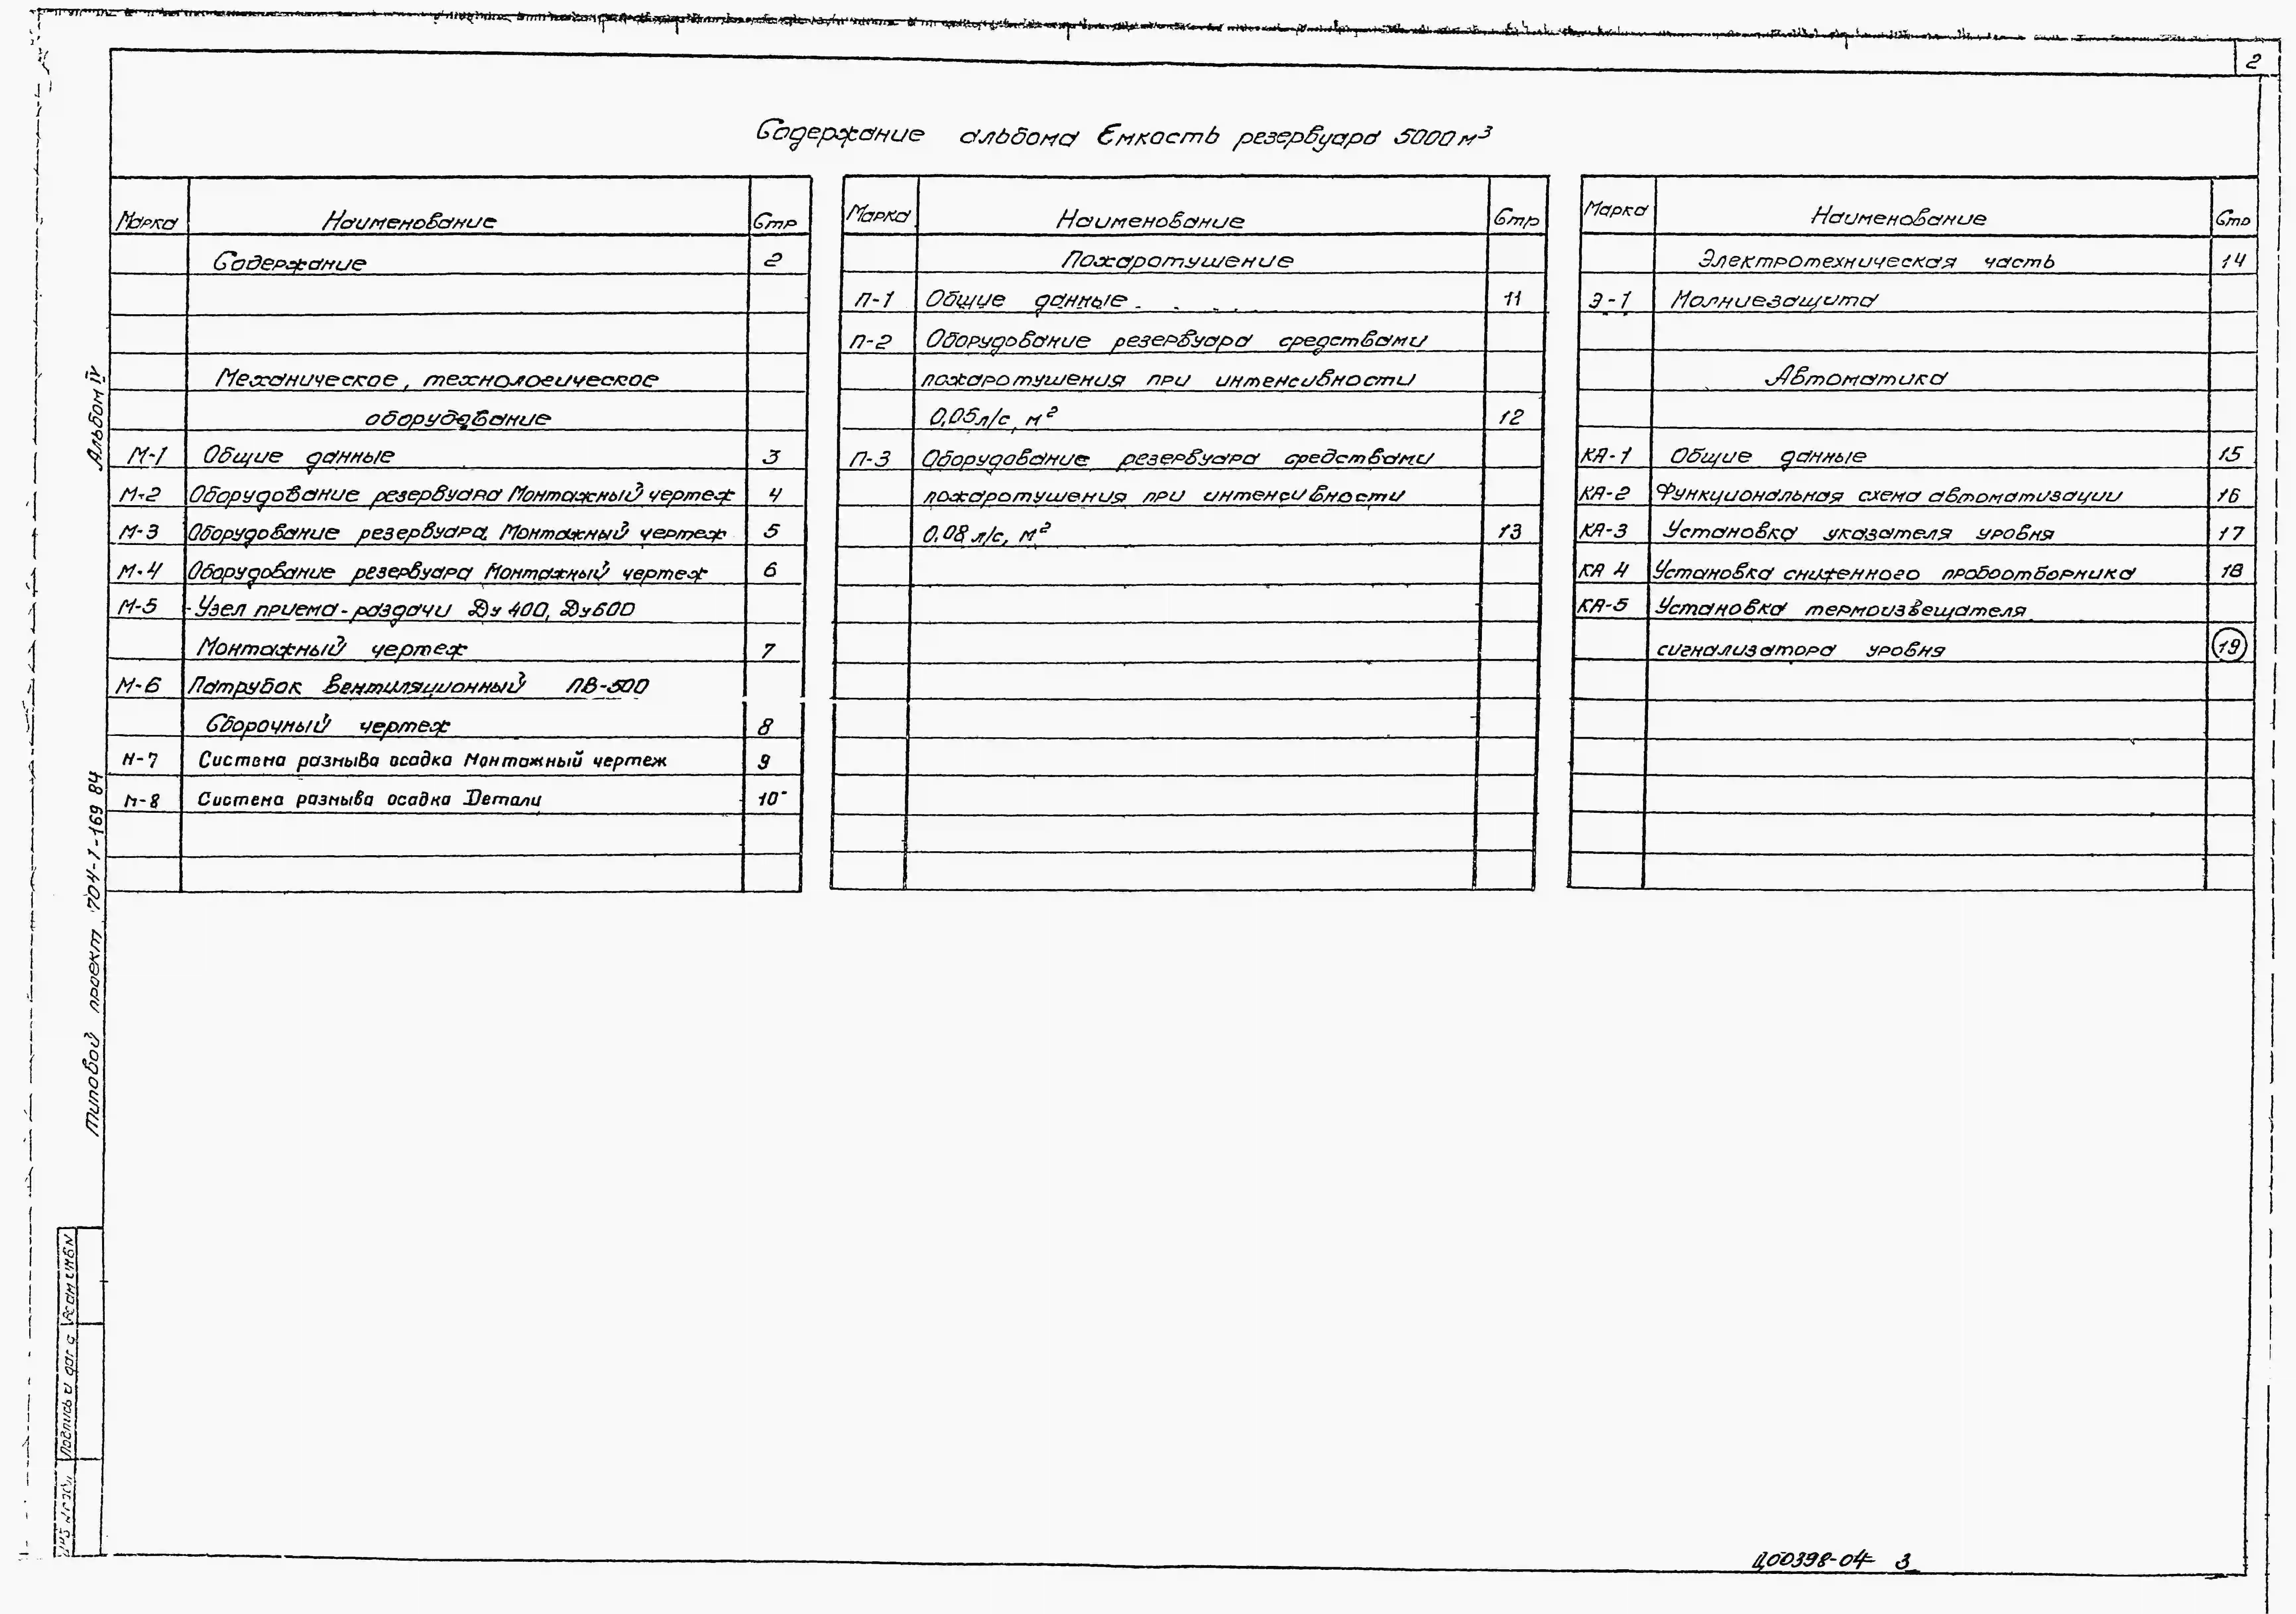 2
Содержание альбома Емкость резервуара 5000 м³
Марка Наименование Стр
Содержание 2
Механическое, технологическое
оборудование
М-1 Общие данные 3
М-2 Оборудование резервуара Монтажный чертеж 4
М-3 Оборудование резервуара. Монтажный чертеж 5
М-4 Оборудование резервуара Монтажный чертеж 6
М-5 Узел приема-раздачи Ду 400, Ду600
Монтажный чертеж 7
М-6 Патрубок вентиляционный ПВ-500
Сборочный чертеж 8
М-7 Система размыва осадка Монтажный чертеж 9
М-8 Система размыва осадка Детали 10
Марка Наименование Стр
Пожаротушение
П-1 Общие данные 11
П-2 Оборудование резервуара средствами
пожаротушения при интенсивности
0,05 л/с, м² 12
П-3 Оборудование резервуара средствами
пожаротушения при интенсивности
0.08 л/с, м² 13
Марка Наименование Стр
Электротехническая часть 14
Э-1 Молниезащита
Автоматика
КА-1 Общие данные 15
КА-2 Функциональная схема автоматизации 16
КА-3 Установка указателя уровня 17
КА 4 Установка сниженного пробоотборника 18
КА-5 Установка термоизвещателя
сигнализатора уровня 19
Альбом IV
Типовой проект 704-1-169 84
Взам инв N
Подпись и дата
Ц00398-04 3